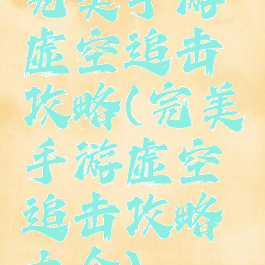 完美手游
虚空追击
攻略(完美
手游虚空
追击攻略
大全)